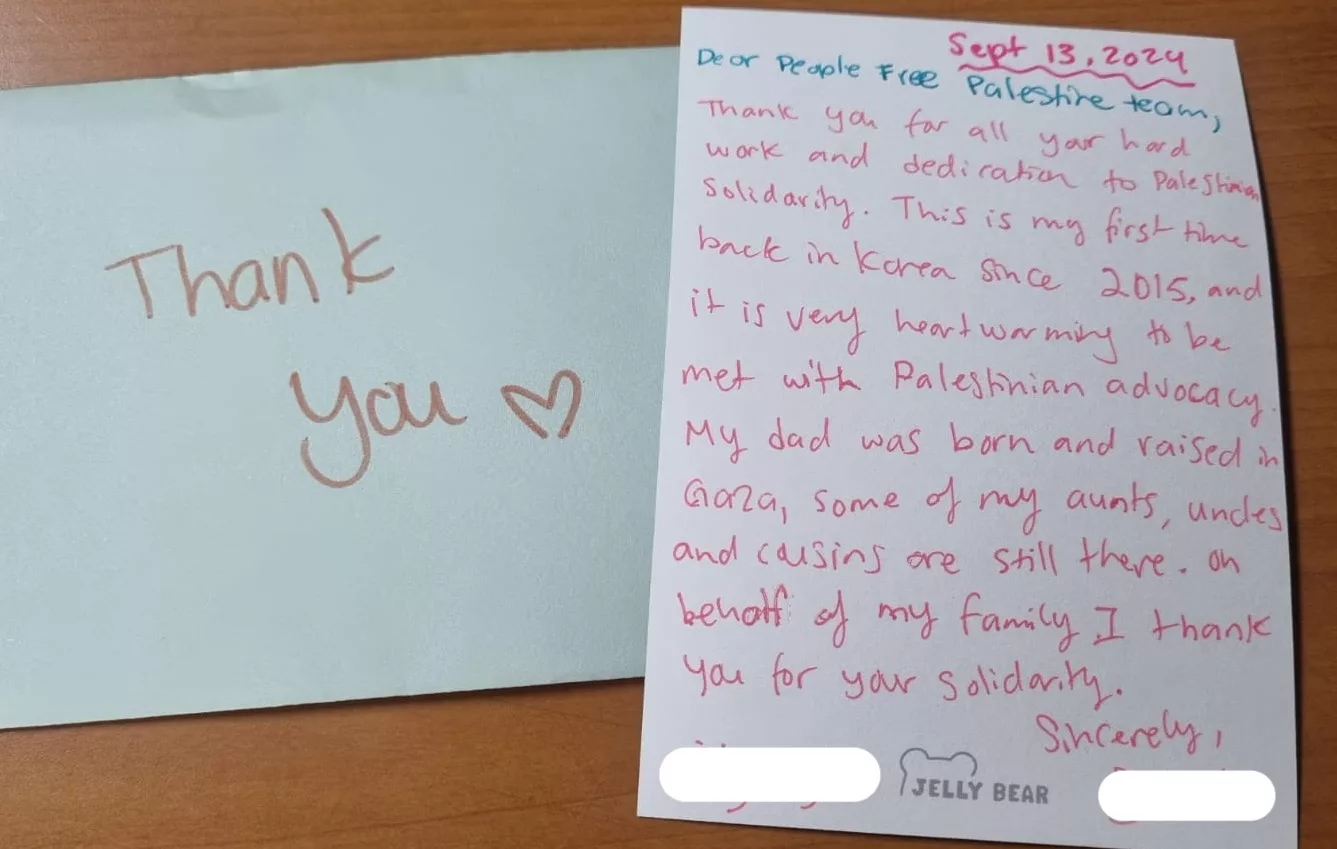 Thank
you ♡
Sept 13, 2024
Dear People Free Palestine team,
Thank you for all your hard
work and dedication to Palestinian
Solidarity. This is my first time
back in Korea since 2015, and
it is very heartwarming to be
met with Palestinian advocacy.
My dad was born and raised in
Gaza, some of my aunts, uncles
and cousins are still there. On
behalf of my family I thank
you for your solidarity.
Sincerely,
JELLY BEAR